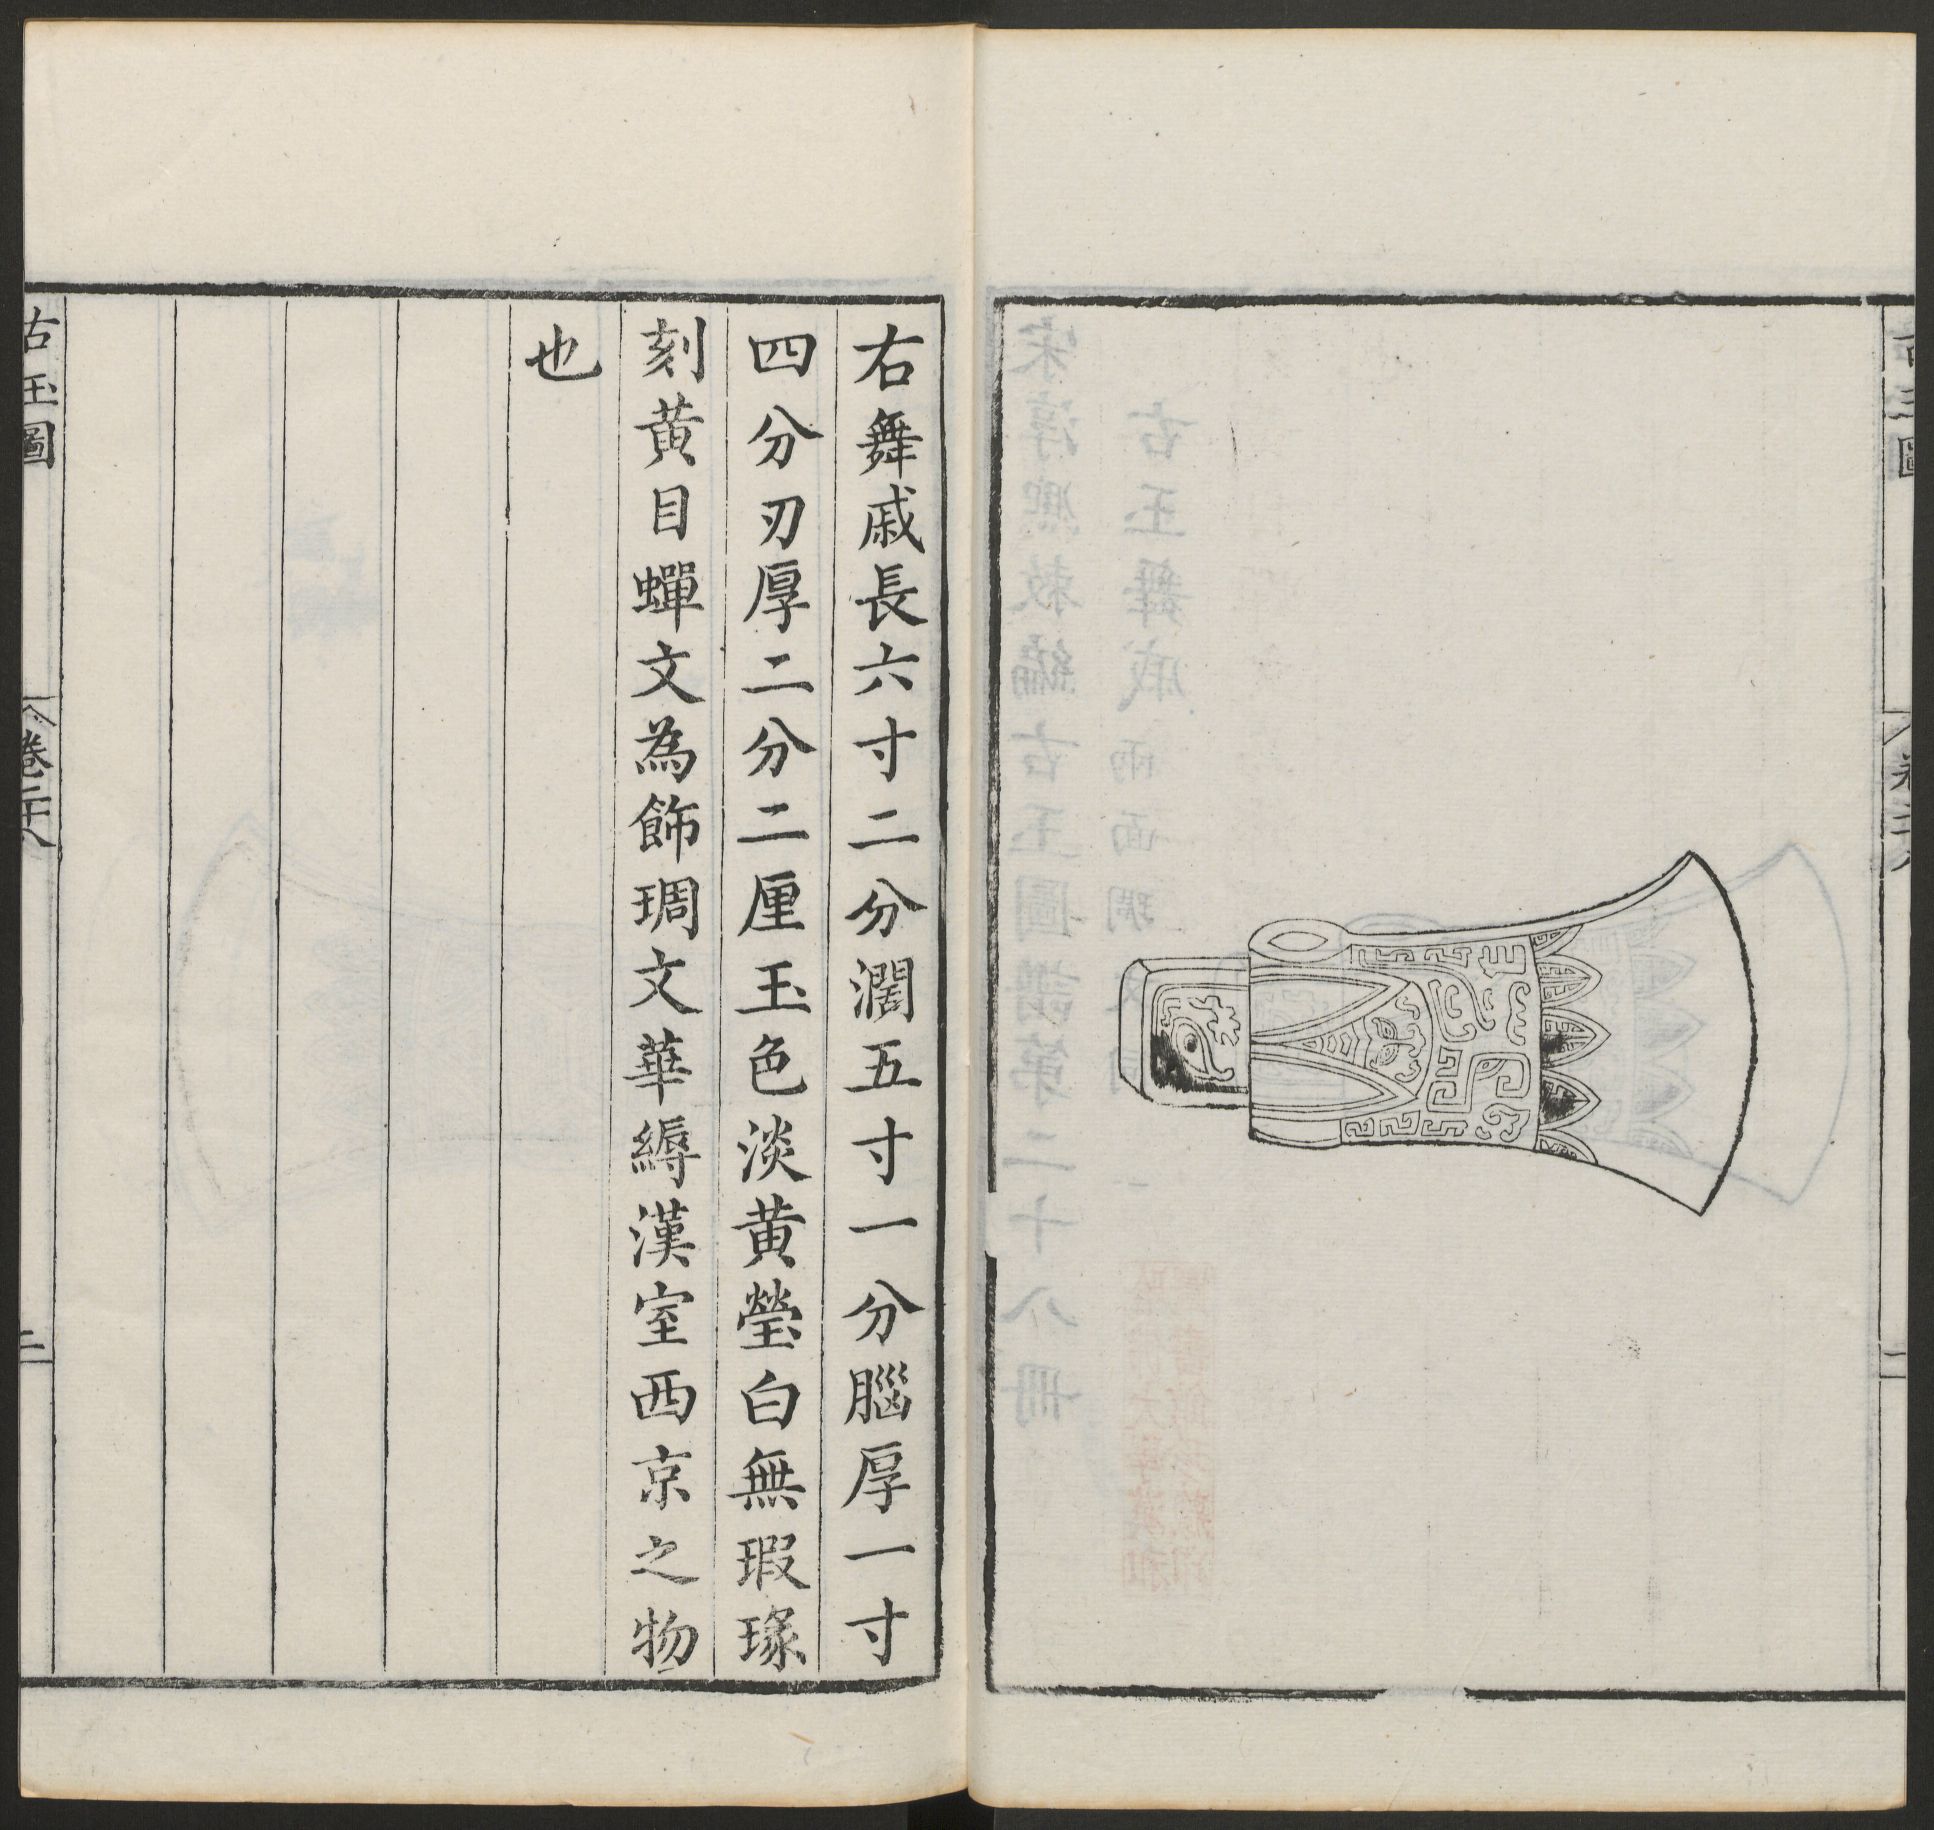 古玉圖
卷二十八
二
右舞戚長六寸二分濶五寸一分腦厚一寸
四分刃厚二分二厘玉色淡黃瑩白無瑕瑑
刻黃目蟬文為飾琱文華縟漢室西京之物
也
古玉圖
卷二十八
三